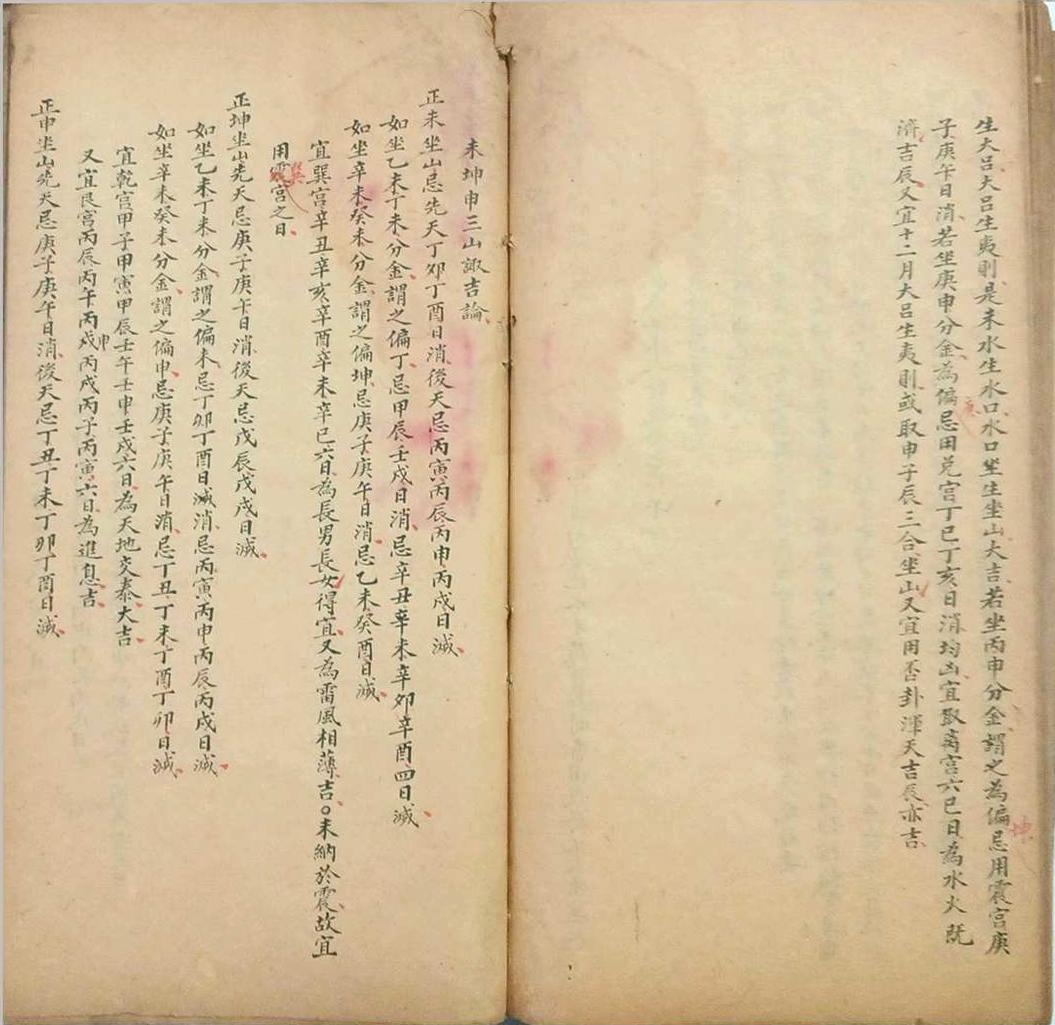 生大呂大呂生夷則是未水生水口水口坐生坐山大吉若坐丙申分金謂之為偏忌用震宮庚
子庚午日消若坐庚申分金為偏忌用兌宮丁巳丁亥日消均凶宜取离宮六巳日為水火既
濟吉辰又宜十二月大呂生夷則或取申子辰三合坐山又宜用否卦渾天吉辰亦吉
未坤申三山諏吉論
正未坐山忌先天丁卯丁酉日消後天忌丙寅丙辰丙申丙戌日滅
如坐乙未丁未分金謂之偏丁忌甲辰壬戌日消忌辛丑辛未辛卯辛酉四日滅
如坐辛未癸未分金謂之偏坤忌庚子庚午日消忌乙未癸酉日滅
宜巽宮辛丑辛亥辛酉辛未辛巳六日為長男長女得宜又為雷風相薄吉○未納於震故宜
用巽宮之日
正坤坐山先天忌庚子庚午日消後天忌戊辰戊戌日滅
如坐乙未丁未分金謂之偏未忌丁卯丁酉日滅消忌丙寅丙申丙辰丙戌日滅
如坐辛未癸未分金謂之偏申忌庚子庚午日消忌丁丑丁未丁酉丁卯日滅
宜乾宮甲子甲寅甲辰壬午壬申壬戌六日為天地交泰大吉
又宜艮宮丙辰丙午丙申丙戌丙子丙寅六日為進息吉
正申坐山先天忌庚子庚午日消後天忌丁丑丁未丁卯丁酉日滅